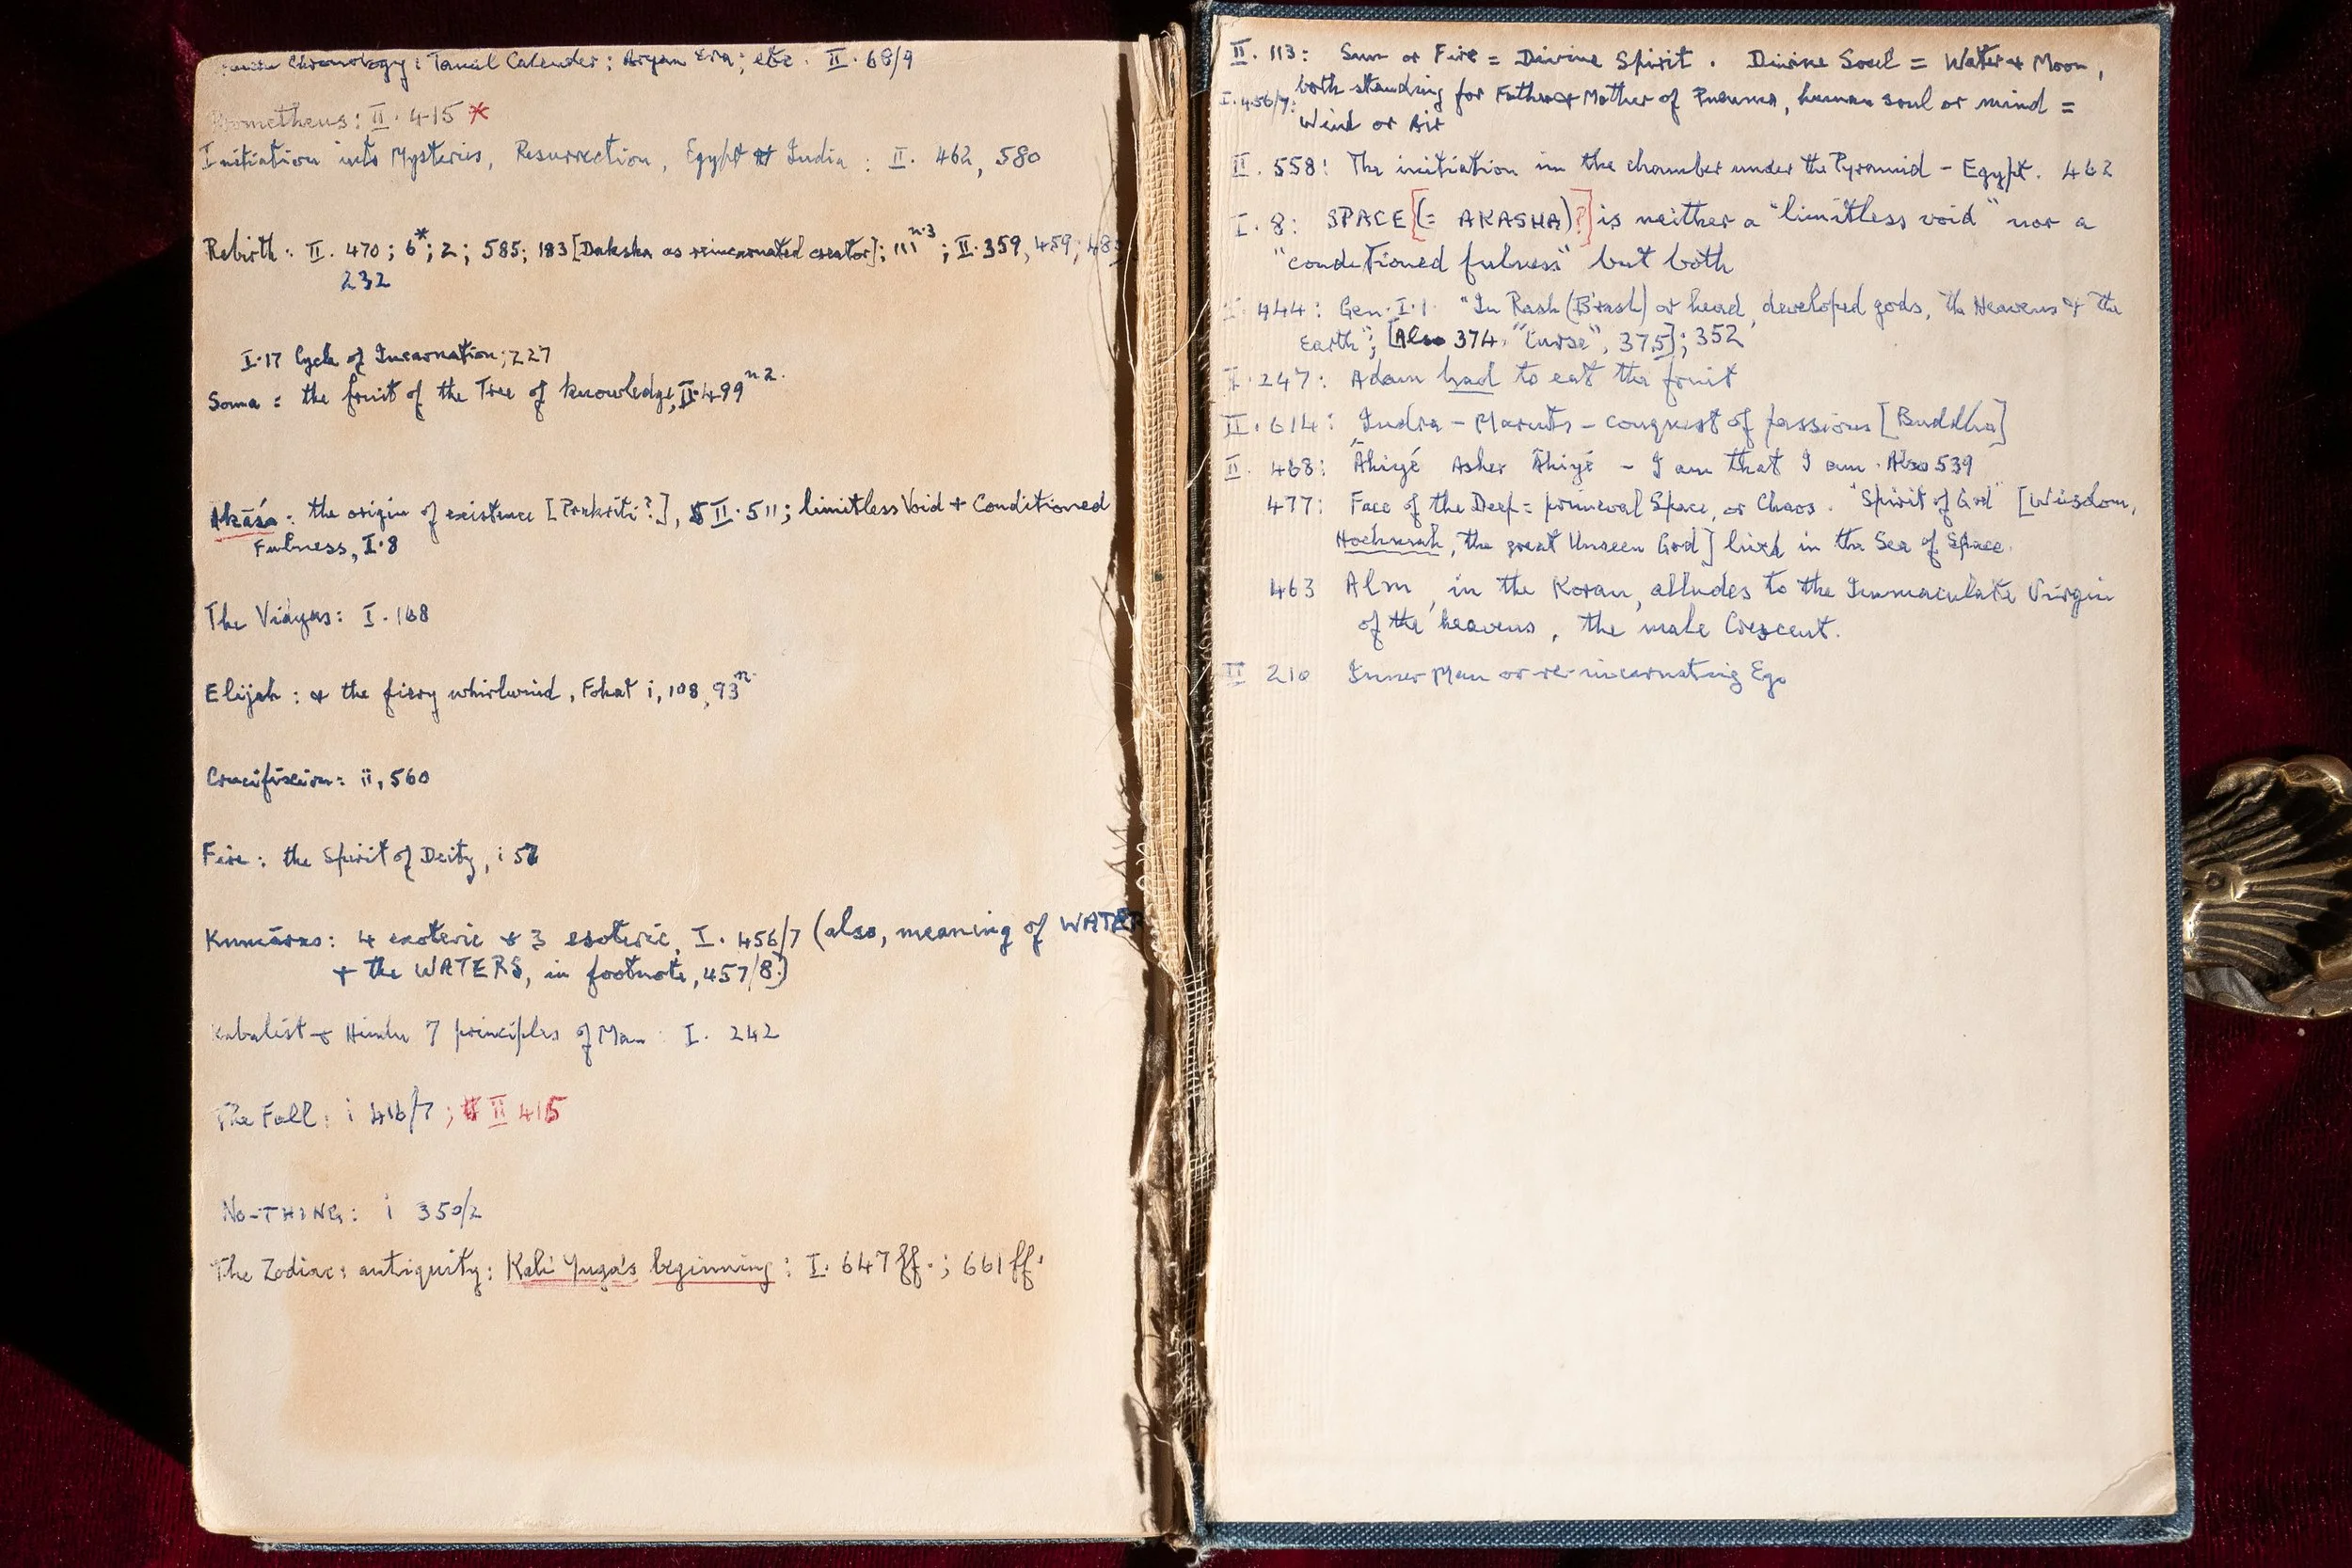 Chronology: Tamil Calender; Aryan Era; etc. II. 68/9
Prometheus: II. 415 *
Initiation into Mysteries, Resurrection, Egypt & India : II. 462, 580
Rebirth: II. 470; 6*; 2; 585; 183 [Daksha as reincarnated creator]; 111 n.3; II. 359, 459;
232
I.17 Cycle of Incarnation; 227
Soma = the fruit of the Tree of knowledge, II. 499 n 2.
Akāśa: the origin of existence [Prakriti?], II. 511; limitless Void + Conditioned
Fulness, I.8
The Vidyas: I. 168
Elijah: & the fiery whirlwind, Fohat i, 108, 93 n.
Crucifixion: ii, 560
Fire: the Spirit of Deity, i
Kumāras: 4 exoteric & 3 esoteric, I. 456/7 (also, meaning of WATER
+ the WATERS, in footnote, 457/8.)
Kabalist & Hindu 7 principles of Man: I. 242
The Fall: i 416/7; II 415
NO-THING: i 350/2
The Zodiac: antiquity: Kali Yuga's beginning: I. 647 ff.; 661 ff.
II. 113: Sun or Fire = Divine Spirit. Divine Soul = Water & Moon,
I. 456/7: both standing for Father & Mother of Pneuma, human soul or mind =
Wind or Air
II. 558: The initiation in the chamber under the Pyramid - Egypt. 462
I. 8: SPACE [(= AKASHA)?] is neither a "limitless void" nor a
"conditioned fulness" but both
444: Gen. I. 1 "In Rash (B'rash) or head, developed gods, the Heavens & the
Earth"; [Also 374. "Curse", 375]; 352
I. 247: Adam had to eat the fruit
II. 614: Indra - Maruts - conquest of passions [Buddha]
II. 468: Āhiyé Asher Āhiyé - I am that I am. Also 539
477: Face of the Deep = primeval Space, or Chaos. "Spirit of God" [Wisdom,
Hochmah, the great Unseen God] lived in the Sea of Space.
463 Alm, in the Koran, alludes to the Immaculate Virgin
of the heavens, the male Crescent.
II 210 Inner Man or re-incarnating Ego